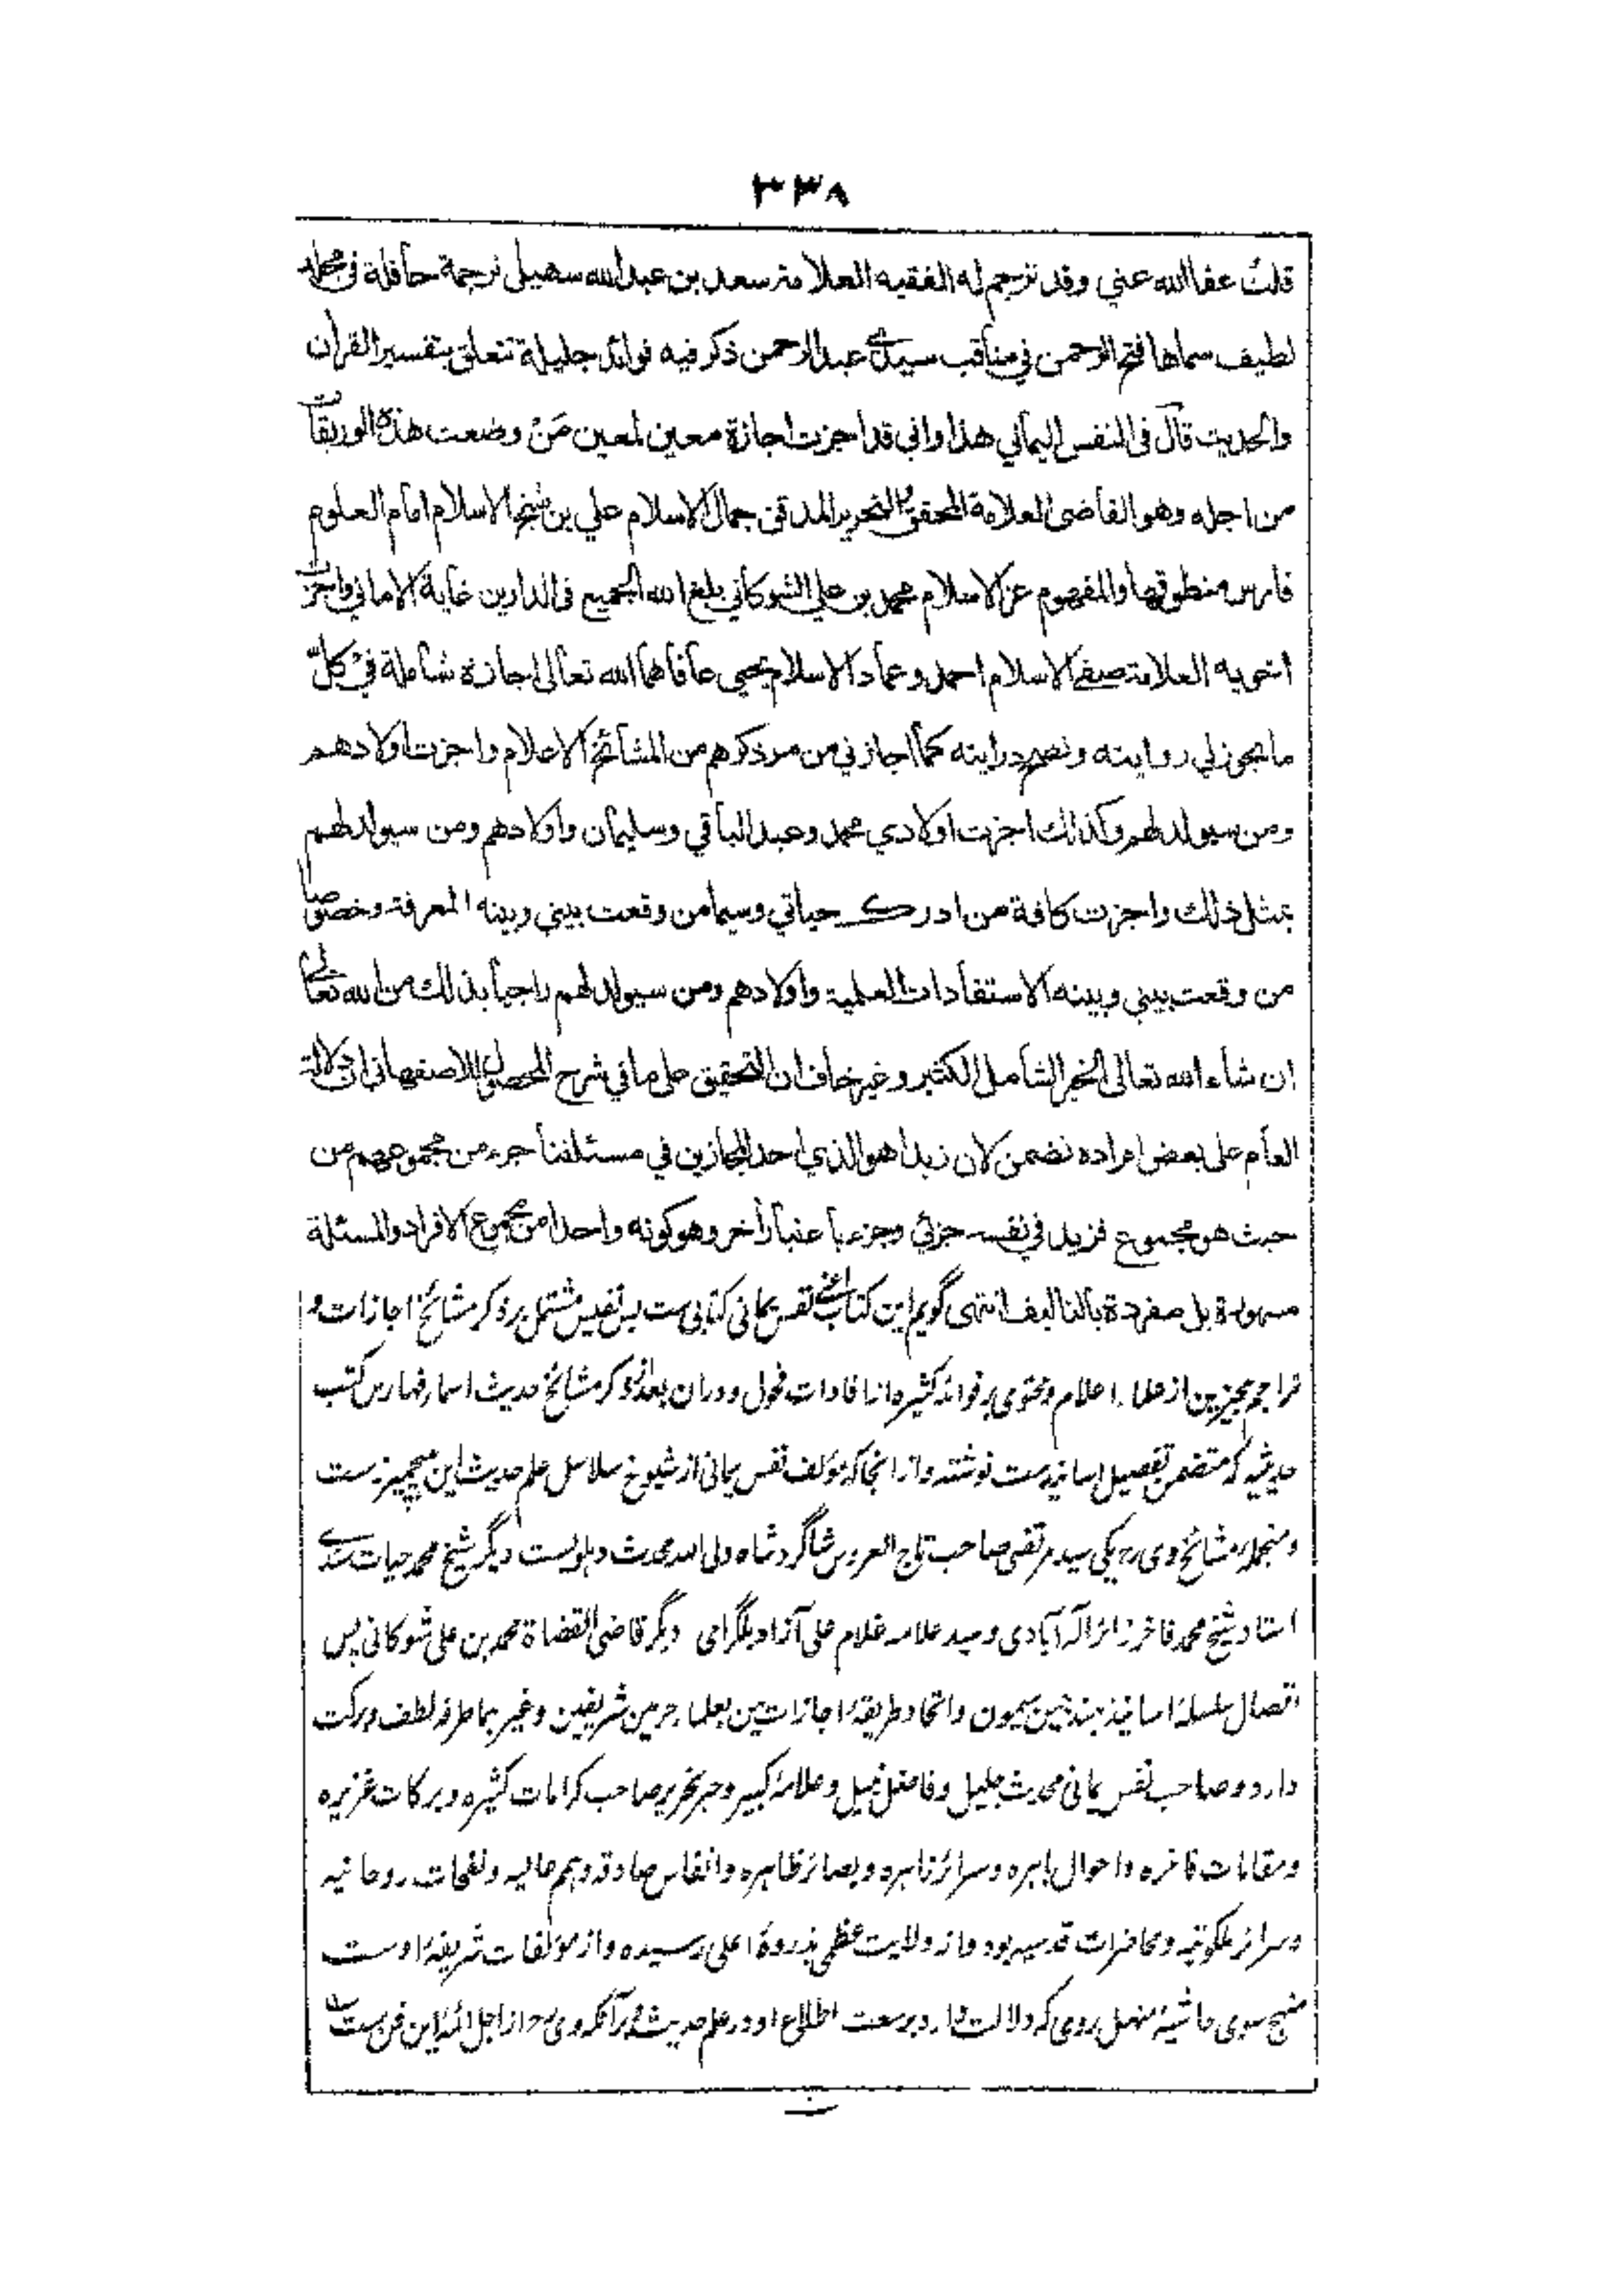 ۳۳۸
قلت عفا الله عني وقد ترجم له الفقيه العلامة سعد بن عبد الله سهيلي ترجمة حافلة في مجلد
لطيف سماها فتح الرحمن في مناقب سيدي عبد الرحمن ذكر فيه فوائد جليلة تتعلق بتفسير القرآن
والحديث قال في النفس اليماني هذا واني قد اجزت اجازة معين لمعين مَنْ وضعت هذه الوريقات
من اجله وهو القاضي العلامة المحقق النحرير المدقق جمال الاسلام علي بن شيخ الاسلام امام العلوم
فارس منطوقها والمفهوم عز الاسلام محمد بن علي الشوكاني بلغ الله الجميع في الدارين غاية الاماني واجزت
اخويه العلامة صفي الاسلام احمد وعماد الاسلام يحيى عافاهما الله تعالى اجازة شاملة في كل
ما يجوز لي روايته وتصح درايته كما اجازني من مر ذكرهم من المشائخ الاعلام واجزت اولادهم
ومن سيولد لهم وكذلك اجزت اولادي محمد وعبد الباقي وسليمان واولادهم ومن سيولد لهم
بمثل ذلك واجزت كافة من ادرك حياتي وسيما من وقعت بيني وبينه المعرفة وخصوصا
من وقعت بيني وبينه الاستفادات العلمية واولادهم ومن سيولد لهم راجيا بذلك من الله تعالى
ان شاء الله تعالى الخير الشامل الكثير وغير خاف ان التحقيق على ما في شرح المحصول للاصفهاني ان دلالة
العام على بعض افراده تضمن لان زيدا هو الذي احد المجازين في مسئلتنا جزء من مجموعهم من
حيث هو مجموع فزيد في نفسه جزئي وجزء باعتبار آخر وهو كونه واحدا من مجموع الافراد والمسئلة
مفردة بالتاليف انتهى گويم اين كتاب اعنى نفس يمانى كتابى ست بس نفيس مشتمل بر ذكر مشائخ اجازات و
تراجم مجيزين از علماء اعلام و محتوى بر فوائد كثيره از افادات فحول و دران بعد از ذكر مشائخ حديث اسماء فهارس كتب
حديثيه كه متضمن تفصيل اسانيدست نوشته و از انجا كه مؤلف نفس يمانى از شيوخ سلاسل علم حديث اين هيچميرزست
و منجمله مشائخ وى رح يكى سيد مرتضى صاحب تاج العروس شاگرد شاه ولى الله محدث دهلويست ديگر شيخ محمد حيات سندى
استاد شيخ محمد فاخر زائر اله آبادى و سيد علامه غلام على آزاد بلگرامى ديگر قاضى القضاة محمد بن على شوكانى پس
اتصال سلسلۀ اسانيد هند بيمن ميمون و اتحاد طريقۀ اجازات يمن بعلماء حرمين شريفين و غيرهما طرفه لطف و بركت
دارد و صاحب نفس يمانى محدث جليل و فاضل نبيل و علامۀ كبير و حبر نحرير صاحب كرامات كثيره و بركات غزيره
و مقامات فاخره و احوال باهره و سرائر زاهره و بصائر ظاهره و انفاس صادقه و همم عاليه و نفحات روحانيه
و سرائر ملكوتيه و محاضرات قدسيه بود و از ولايت عظمى بذروۀ اعلى رسيده و از مؤلفات شريفۀ اوست
منهج سوى حاشيۀ منهل روى كه دلالت دارد بر سعت اطلاع او در علم حديث و بر آنكه وى رح از اجل ائمۀ اين فن ست